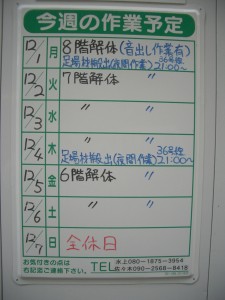 今週の作業予定
12/1 月 8階解体(音出し作業有)
足場材搬出(夜間作業)36号線21:00〜
12/2 火 7階解体 〃
12/3 水 〃 〃
12/4 木 〃 〃
足場材搬出(夜間作業)36号線21:00〜
12/5 金 6階解体 〃
12/6 土 〃 〃
12/7 日 全休日
お気付きの点は
右記迄ご連絡下さい。
TEL 水上090-1875-3954
佐々木090-2568-8418